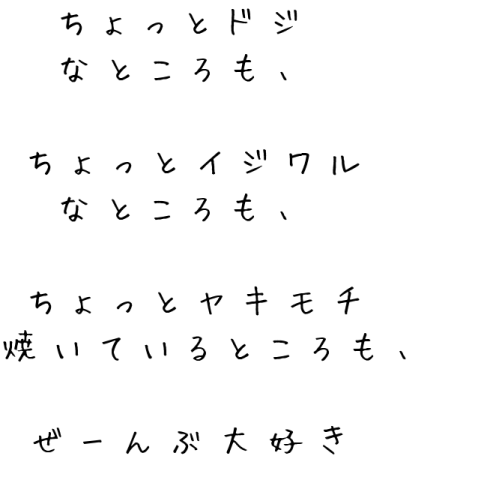 ちょっとドジ
なところも、
ちょっとイジワル
なところも、
ちょっとヤキモチ
焼いているところも、
ぜーんぶ大好き